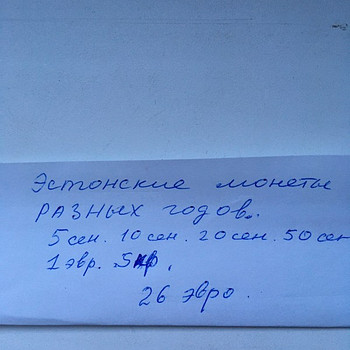 Эстонские монеты
РАЗНЫХ годов.
5 сен. 10 сен. 20 сен. 50 сен
1 эвр.
26 эвро.